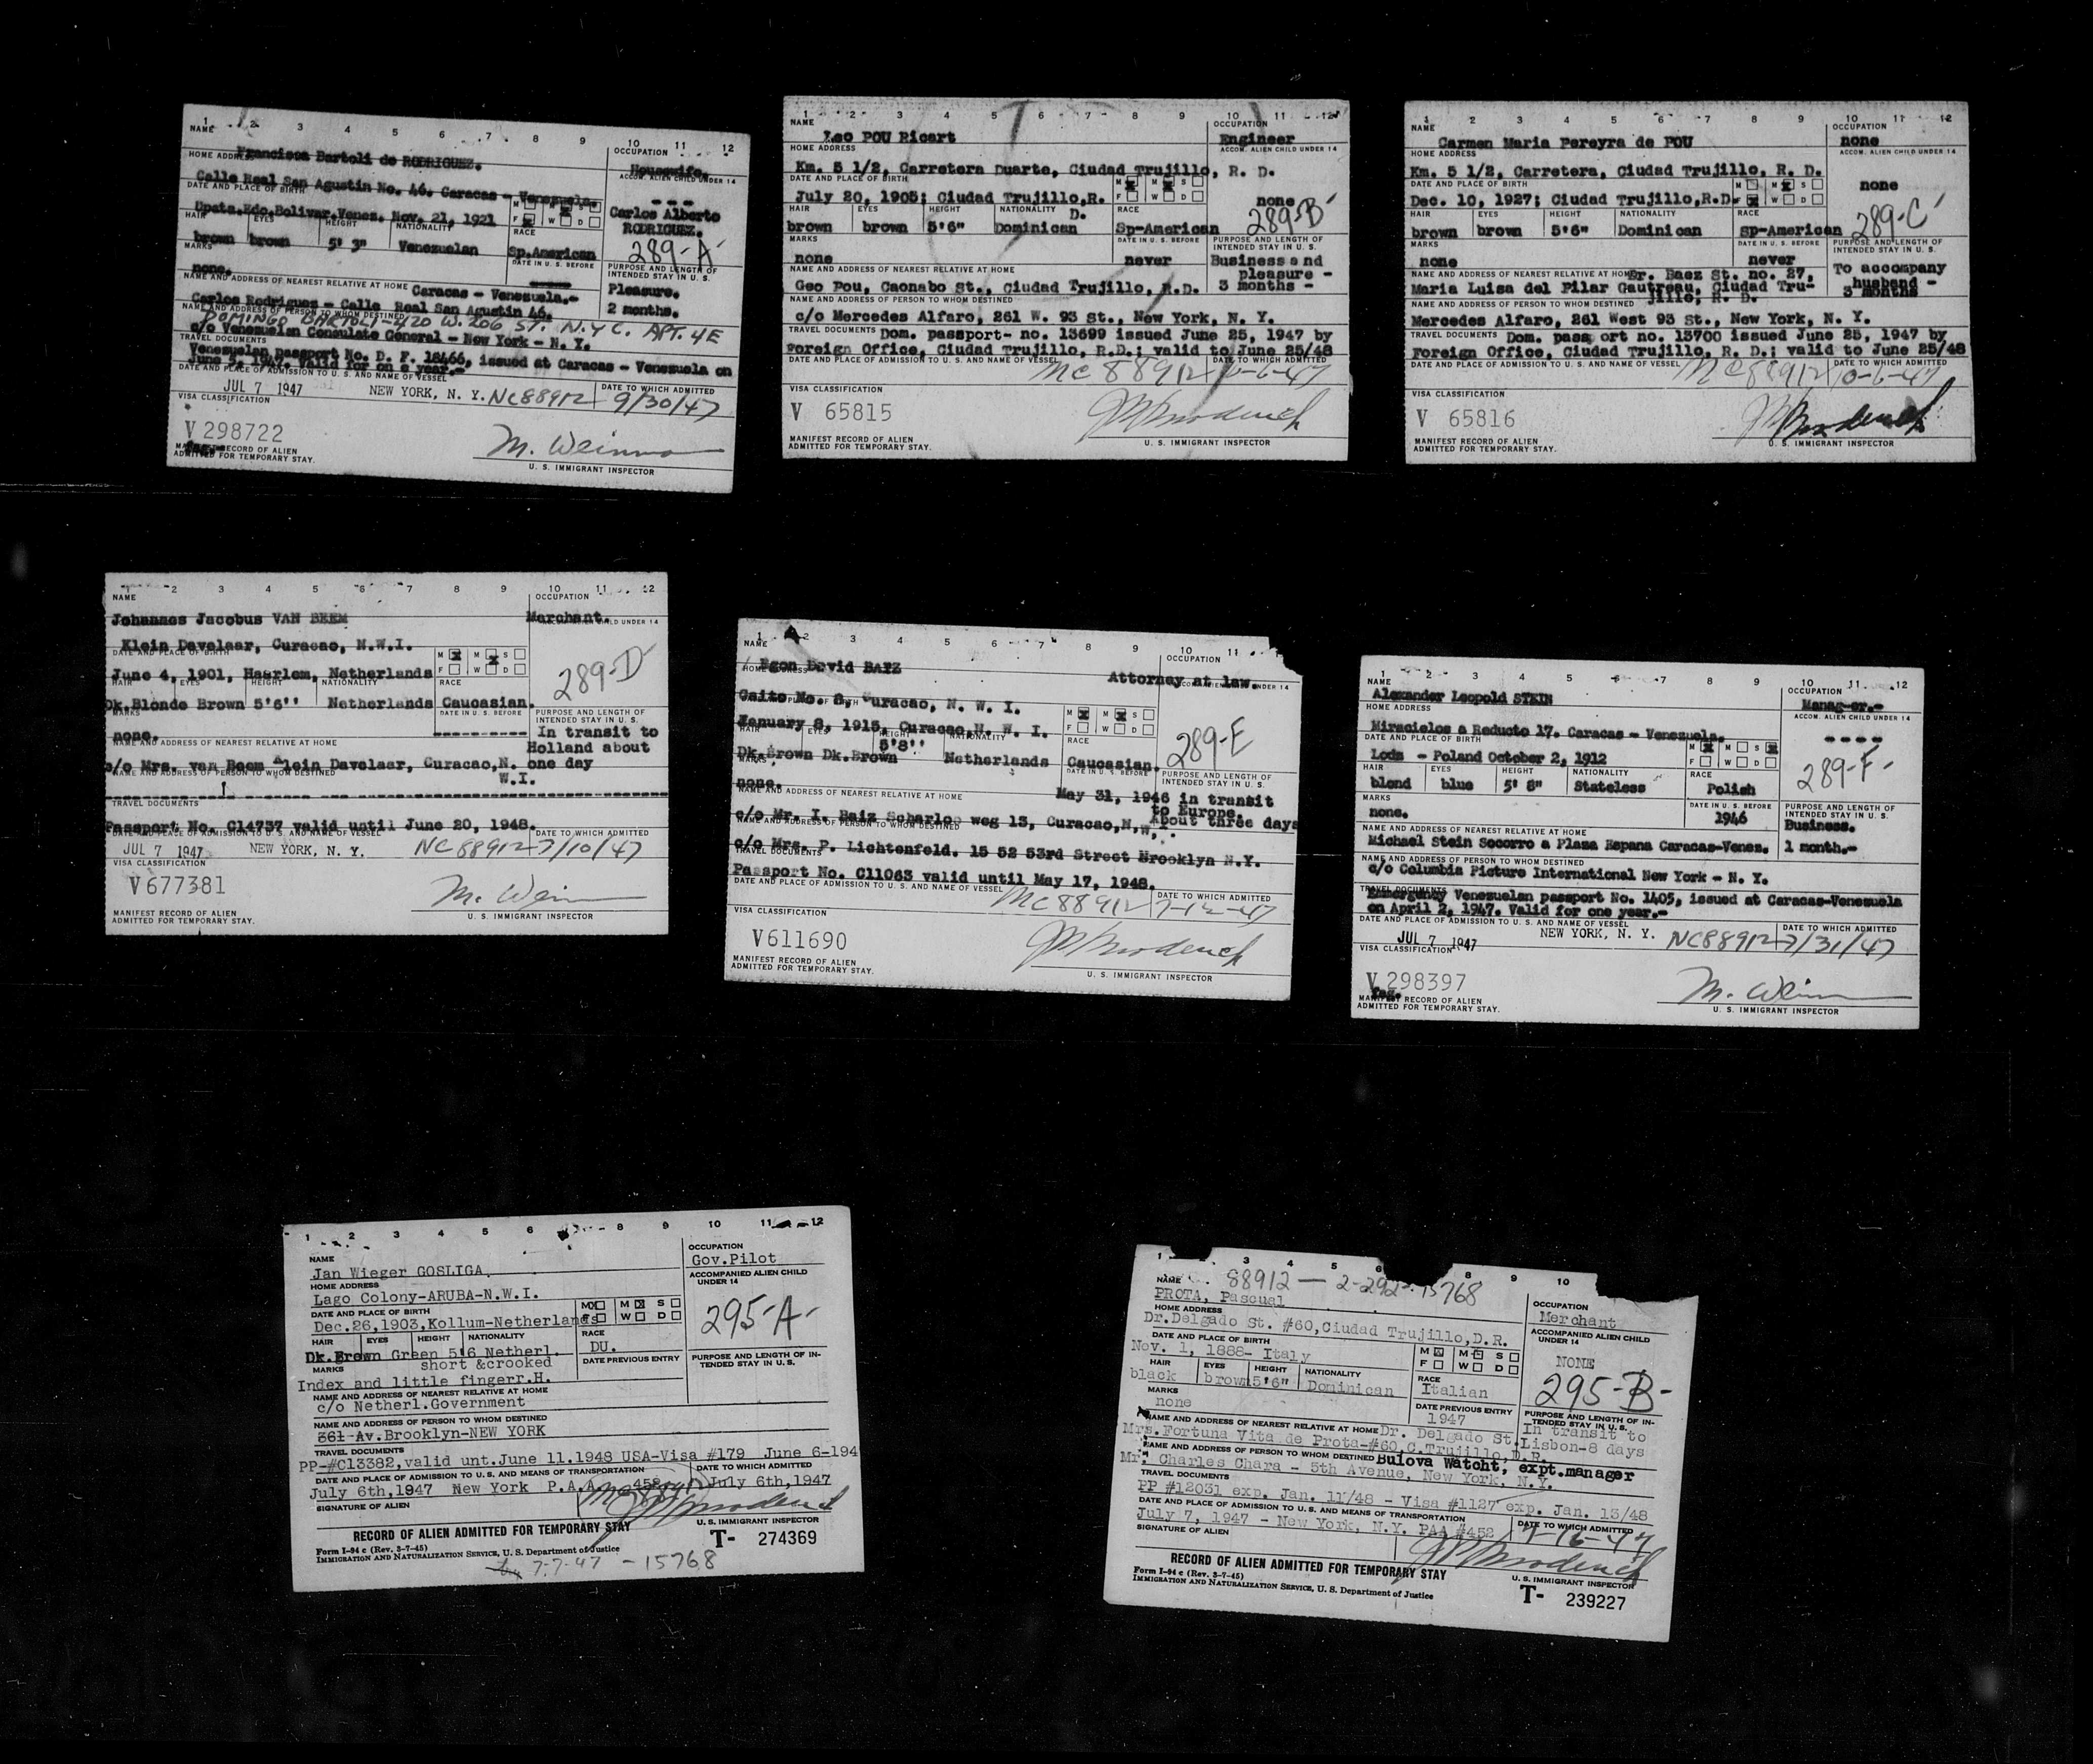 1 2 3 4 5 6 7 8 9 10 11 12
NAME OCCUPATION
Francisca Bartoli de RODRIGUEZ. Housewife.
HOME ADDRESS ACCOM. ALIEN CHILD UNDER 14
Calle Real San Agustin No. 46. Caracas - Venezuela. - - -
DATE AND PLACE OF BIRTH M F M S W D
Upata.Edo.Bolivar.Venez. Nov. 21, 1921 Carlos Alberto RODRIGUEZ.
HAIR EYES HEIGHT NATIONALITY RACE
brown brown 5' 3" Venezuelan Sp.American 289-A
MARKS DATE IN U. S. BEFORE PURPOSE AND LENGTH OF INTENDED STAY IN U. S.
none. Pleasure.
NAME AND ADDRESS OF NEAREST RELATIVE AT HOME Caracas - Venezuela.-
Carlos Rodriguez - Calle Real San Agustin 46. 2 months.
NAME AND ADDRESS OF PERSON TO WHOM DESTINED
DOMINGO BARTOLI-420 W. 206 ST. N.Y.C. APT. 4E
c/o Venezuelan Consulate General - New York - N. Y.
TRAVEL DOCUMENTS
Venezuelan passport No. D. F. 18466, issued at Caracas - Venezuela on
June 5, 1947. Valid for on e year.-
DATE AND PLACE OF ADMISSION TO U. S. AND NAME OF VESSEL DATE TO WHICH ADMITTED
JUL 7 1947 NEW YORK, N. Y. NC88912 9/30/47
VISA CLASSIFICATION
V 298722
M. Weinman
MANIFEST RECORD OF ALIEN
ADMITTED FOR TEMPORARY STAY.
U. S. IMMIGRANT INSPECTOR
1 2 3 4 5 6 7 8 9 10 11 12
NAME OCCUPATION
Leo POU Ricart Engineer
HOME ADDRESS ACCOM. ALIEN CHILD UNDER 14
Km. 5 1/2, Carretera Duarte, Ciudad Trujillo, R. D.
DATE AND PLACE OF BIRTH M F M S W D
July 20, 1905; Ciudad Trujillo,R. D. none
HAIR EYES HEIGHT NATIONALITY RACE 289-B
brown brown 5'6" Dominican Sp-American
MARKS DATE IN U. S. BEFORE PURPOSE AND LENGTH OF INTENDED STAY IN U. S.
none never Business and pleasure -
NAME AND ADDRESS OF NEAREST RELATIVE AT HOME
Geo Pou, Caonabo St., Ciudad Trujillo, R.D. 3 months -
NAME AND ADDRESS OF PERSON TO WHOM DESTINED
c/o Mercedes Alfaro, 261 W. 93 St., New York, N. Y.
TRAVEL DOCUMENTS Dom. passport- no. 13699 issued June 25, 1947 by
Foreign Office, Ciudad Trujillo, R.D.; valid to June 25/48
DATE AND PLACE OF ADMISSION TO U. S. AND NAME OF VESSEL DATE TO WHICH ADMITTED
MC 88912 10-6-47
VISA CLASSIFICATION
V 65815
MANIFEST RECORD OF ALIEN
ADMITTED FOR TEMPORARY STAY.
U. S. IMMIGRANT INSPECTOR
1 2 3 4 5 6 7 8 9 10 11 12
NAME OCCUPATION
Carmen Maria Pereyra de POU none
HOME ADDRESS ACCOM. ALIEN CHILD UNDER 14
Km. 5 1/2, Carretera, Ciudad Trujillo, R. D.
DATE AND PLACE OF BIRTH M F M S W D none
Dec. 10, 1927; Ciudad Trujillo,R.D.
HAIR EYES HEIGHT NATIONALITY RACE 289-C
brown brown 5'6" Dominican Sp-American
MARKS DATE IN U. S. BEFORE PURPOSE AND LENGTH OF INTENDED STAY IN U. S.
none never To accompany husband -
NAME AND ADDRESS OF NEAREST RELATIVE AT HOME Dr. Baez St. no. 27,
Maria Luisa del Pilar Gautreau, Ciudad Tru- 3 months
NAME AND ADDRESS OF PERSON TO WHOM DESTINED jillo, R. D.
Mercedes Alfaro, 261 West 93 St., New York, N. Y.
TRAVEL DOCUMENTS Dom. pass ort no. 13700 issued June 25, 1947 by
Foreign Office, Ciudad Trujillo, R. D.; valid to June 25/48
DATE AND PLACE OF ADMISSION TO U. S. AND NAME OF VESSEL DATE TO WHICH ADMITTED
MC88912 10-6-47
VISA CLASSIFICATION
V 65816
MANIFEST RECORD OF ALIEN
ADMITTED FOR TEMPORARY STAY.
U. S. IMMIGRANT INSPECTOR
1 2 3 4 5 6 7 8 9 10 11 12
NAME OCCUPATION
Johannes Jacobus VAN BEEM Merchant.
Klein Davelaar, Curacao, N.W.I.
DATE AND PLACE OF BIRTH M F M S W D
June 4, 1901, Haarlem, Netherlands 289-D
HAIR EYES HEIGHT NATIONALITY RACE
Dk.Blonde Brown 5'6'' Netherlands Caucasian.
MARKS DATE IN U. S. BEFORE PURPOSE AND LENGTH OF INTENDED STAY IN U. S.
none. ---------- In transit to
NAME AND ADDRESS OF NEAREST RELATIVE AT HOME Holland about
c/o Mrs. van Beem Klein Davelaar, Curacao,N. W.I. one day
NAME AND ADDRESS OF PERSON TO WHOM DESTINED
TRAVEL DOCUMENTS
Passport No. C14737 valid until June 20, 1948.
DATE AND PLACE OF ADMISSION TO U. S. AND NAME OF VESSEL DATE TO WHICH ADMITTED
JUL 7 1947 NEW YORK, N. Y. NC88912 7/10/47
VISA CLASSIFICATION
V677381
MANIFEST RECORD OF ALIEN
ADMITTED FOR TEMPORARY STAY.
U. S. IMMIGRANT INSPECTOR
1 2 3 4 5 6 7 8 9 10 11
NAME OCCUPATION
Egon David BAIZ Attorney at law.
HOME ADDRESS
Gaito No. 8, Curacao, N. W. I.
January 8, 1915, Curacao,N. W. I. M F M S W D
HAIR EYES HEIGHT NATIONALITY RACE 289-E
Dk.Brown Dk.Brown 5'8'' Netherlands Caucasian.
MARKS DATE IN U. S. BEFORE PURPOSE AND LENGTH OF INTENDED STAY IN U. S.
none.
NAME AND ADDRESS OF NEAREST RELATIVE AT HOME May 31, 1946 in transit to Europe.
c/o Mr. I. Baiz Scharloo weg 13, Curacao,N.W.I. About three days
NAME AND ADDRESS OF PERSON TO WHOM DESTINED
c/o Mrs. P. Lichtenfeld. 15 52 53rd Street Brooklyn N.Y.
TRAVEL DOCUMENTS
Passport No. C11063 valid until May 17, 1948.
DATE AND PLACE OF ADMISSION TO U. S. AND NAME OF VESSEL DATE TO WHICH ADMITTED
MC 88912
VISA CLASSIFICATION
V611690
MANIFEST RECORD OF ALIEN
ADMITTED FOR TEMPORARY STAY.
U. S. IMMIGRANT INSPECTOR
1 2 3 4 5 6 7 8 9 10 11 12
NAME OCCUPATION
Alexander Leopold STEIN Manag-er.-
HOME ADDRESS ACCOM. ALIEN CHILD UNDER 14
Miracielos a Reducto 17. Caracas - Venezuela. - - - -
DATE AND PLACE OF BIRTH M F M S W D
Lodz - Poland October 2, 1912
HAIR EYES HEIGHT NATIONALITY RACE 289-F-
blond blue 5' 8" Stateless Polish
MARKS DATE IN U. S. BEFORE PURPOSE AND LENGTH OF INTENDED STAY IN U. S.
none. 1946 Business.
NAME AND ADDRESS OF NEAREST RELATIVE AT HOME
Michael Stein Socorro a Plaza Espana Caracas-Venez. 1 month.-
NAME AND ADDRESS OF PERSON TO WHOM DESTINED
c/o Columbia Picture International New York - N. Y.
TRAVEL DOCUMENTS
Emergency Venezuelan passport No. 1405, issued at Caracas-Venezuela
on April 2, 1947. Valid for one year.-
DATE AND PLACE OF ADMISSION TO U. S. AND NAME OF VESSEL DATE TO WHICH ADMITTED
JUL 7 1947 NEW YORK, N. Y. NC88912 7/31/47
VISA CLASSIFICATION
V 298397
MANIFEST RECORD OF ALIEN
ADMITTED FOR TEMPORARY STAY.
U. S. IMMIGRANT INSPECTOR
1 2 3 4 5 6 8 9 10 11 12
NAME OCCUPATION
Jan Wieger GOSLIGA. Gov.Pilot
HOME ADDRESS ACCOMPANIED ALIEN CHILD UNDER 14
Lago Colony-ARUBA-N.W.I.
DATE AND PLACE OF BIRTH M F M S W D
Dec.26,1903,Kollum-Netherlands 295-A-
HAIR EYES HEIGHT NATIONALITY RACE
Dk.Brown Green 5'6 Netherl. DU.
MARKS short &crooked DATE PREVIOUS ENTRY PURPOSE AND LENGTH OF INTENDED STAY IN U. S.
Index and little fingerr.H.
NAME AND ADDRESS OF NEAREST RELATIVE AT HOME
c/o Netherl.Government
NAME AND ADDRESS OF PERSON TO WHOM DESTINED
361 Av.Brooklyn-NEW YORK
TRAVEL DOCUMENTS
PP-#C13382,valid unt.June 11.1948 USA-Visa #179 June 6-194
DATE AND PLACE OF ADMISSION TO U. S. AND MEANS OF TRANSPORTATION DATE TO WHICH ADMITTED
July 6th,1947 New York P.A.A. 458 July 6th,1947
SIGNATURE OF ALIEN
U. S. IMMIGRANT INSPECTOR
RECORD OF ALIEN ADMITTED FOR TEMPORARY STAY T- 274369
Form I-94 c (Rev. 3-7-45)
IMMIGRATION AND NATURALIZATION SERVICE, U. S. Department of Justice
7-7-47 - 15768
1 3 4 5 6 8 9 10
88912 - 2-292- 15768
NAME OCCUPATION
PROTA, Pascual Merchant
HOME ADDRESS ACCOMPANIED ALIEN CHILD UNDER 14
Dr.Delgado St. #60,Ciudad Trujillo,D.R.
DATE AND PLACE OF BIRTH M F M S W D
Nov. 1, 1888- Italy NONE
HAIR EYES HEIGHT NATIONALITY RACE
black brown 5'6" Dominican Italian 295-B-
MARKS DATE PREVIOUS ENTRY PURPOSE AND LENGTH OF INTENDED STAY IN U. S.
none 1947 In transit to
NAME AND ADDRESS OF NEAREST RELATIVE AT HOME Dr. Delgado St. Lisbon-8 days
Mrs.Fortuna Vita de Prota-#60,C.Trujillo,D.R.
NAME AND ADDRESS OF PERSON TO WHOM DESTINED Bulova Watcht, expt.manager
Mr. Charles Chara - 5th Avenue, New York, N.Y.
TRAVEL DOCUMENTS
PP #12031 exp. Jan. 11/48 - Visa #1127 exp. Jan. 13/48
DATE AND PLACE OF ADMISSION TO U. S. AND MEANS OF TRANSPORTATION DATE TO WHICH ADMITTED
July 7, 1947 - New York, N.Y. PAA #452 7-16-47
SIGNATURE OF ALIEN
RECORD OF ALIEN ADMITTED FOR TEMPORARY STAY
U. S. IMMIGRANT INSPECTOR
Form I-94 c (Rev. 3-7-45)
IMMIGRATION AND NATURALIZATION SERVICE, U. S. Department of Justice
T- 239227